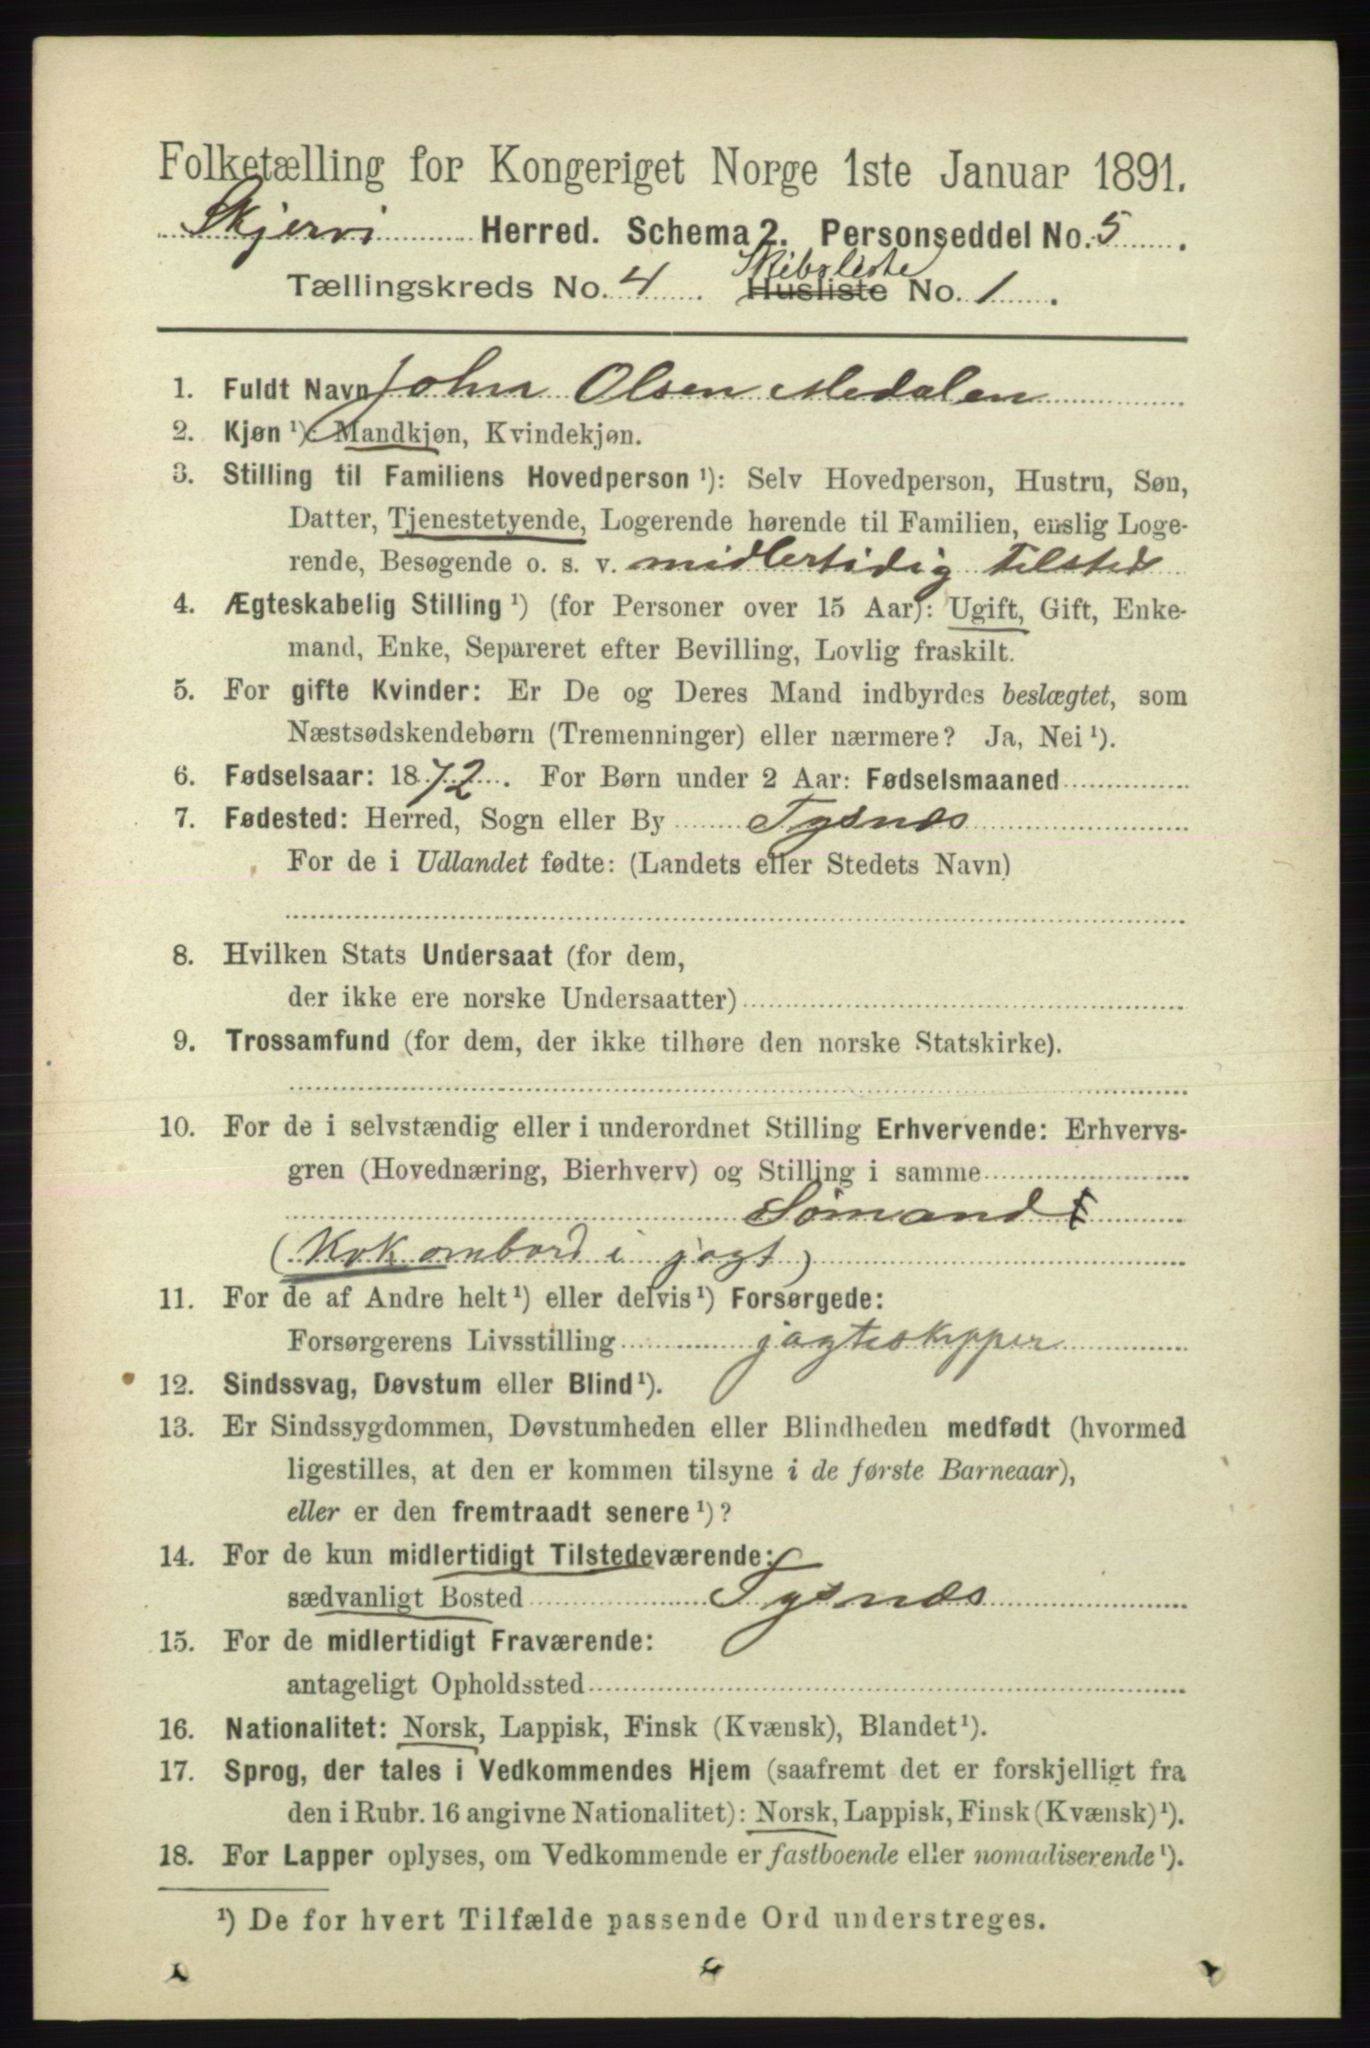 Folketælling for Kongeriget Norge 1ste Januar 1891.
Skjervø Herred. Schema 2. Personseddel No. 5.
Tællingskreds No. 4 Skibsliste Husliste No. 1.
1. Fuldt Navn John Olsen Medalen
2. Kjøn¹): Mandkjøn, Kvindekjøn.
3. Stilling til Familiens Hovedperson¹): Selv Hovedperson, Hustru, Søn,
Datter, Tjenestetyende, Logerende hørende til Familien, enslig Loge-
rende, Besøgende o. s. v. midlertidig tilsted
4. Ægteskabelig Stilling¹) (for Personer over 15 Aar): Ugift, Gift, Enke-
mand, Enke, Separeret efter Bevilling, Lovlig fraskilt.
5. For gifte Kvinder: Er De og Deres Mand indbyrdes beslægtet, som
Næstsødskendebørn (Tremenninger) eller nærmere? Ja, Nei¹).
6. Fødselsaar: 1872. For Børn under 2 Aar: Fødselsmaaned
7. Fødested: Herred, Sogn eller By Tysnæs
For de i Udlandet fødte: (Landets eller Stedets Navn)
8. Hvilken Stats Undersaat (for dem,
der ikke ere norske Undersaatter)
9. Trossamfund (for dem, der ikke tilhøre den norske Statskirke).
10. For de i selvstændig eller i underordnet Stilling Erhvervende: Erhvervs-
gren (Hovednæring, Bierhverv) og Stilling i samme
Sømand
(Kok ombord i jagt)
11. For de af Andre helt¹) eller delvis¹) Forsørgede:
Forsørgerens Livsstilling jagteskipper
12. Sindssvag, Døvstum eller Blind¹).
13. Er Sindssygdommen, Døvstumheden eller Blindheden medfødt (hvormed
ligestilles, at den er kommen tilsyne i de første Barneaar),
eller er den fremtraadt senere¹)?
14. For de kun midlertidigt Tilstedeværende:
sædvanligt Bosted Tysnæs
15. For de midlertidigt Fraværende:
antageligt Opholdssted
16. Nationalitet: Norsk, Lappisk, Finsk (Kvænsk), Blandet¹).
17. Sprog, der tales i Vedkommendes Hjem (saafremt det er forskjelligt fra
den i Rubr. 16 angivne Nationalitet): Norsk, Lappisk, Finsk (Kvænsk)¹).
18. For Lapper oplyses, om Vedkommende er fastboende eller nomadiserende¹).
¹) De for hvert Tilfælde passende Ord understreges.